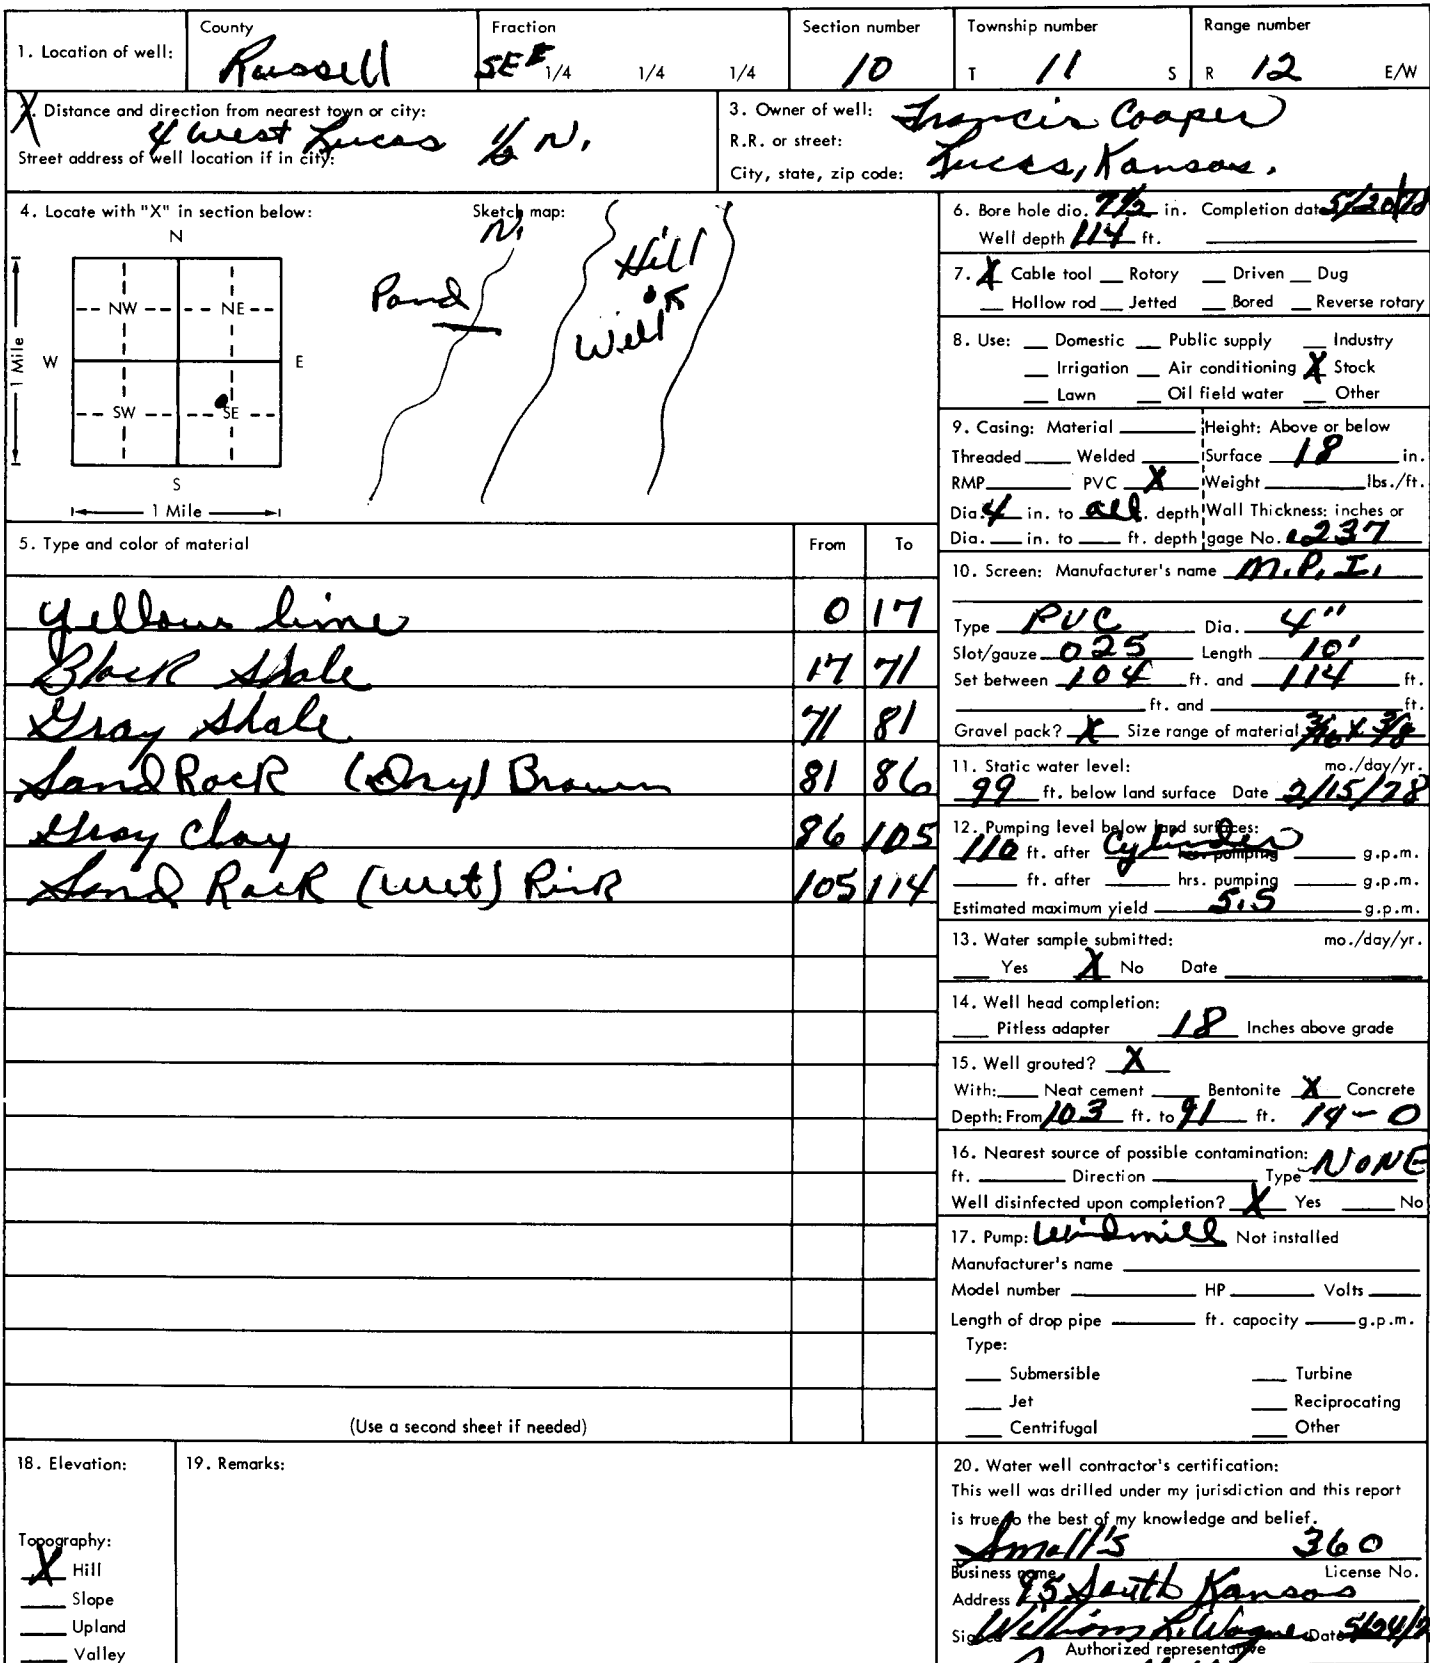 1. Location of well: County Russell Fraction SE 1/4 1/4 1/4 Section number 10 Township number T 11 S Range number R 12 E/W
Distance and direction from nearest town or city:
4 West Lucas 1/2 N.
Street address of well location if in city:
3. Owner of well: Francis Cooper
R.R. or street:
City, state, zip code: Lucas, Kansas.
4. Locate with "X" in section below:
N
NW NE
W E
SW SE
S
1 Mile
1 Mile
Sketch map:
N.
Pond
Hill
Well
5. Type and color of material From To
Yellow lime 0 17
Black Shale 17 71
Gray Shale 71 81
Sand Rock (Dry) Brown 81 86
Gray Clay 86 105
Sand Rock (Wet) Pink 105 114
(Use a second sheet if needed)
6. Bore hole dia. 7 1/2 in. Completion date 5/20/78
Well depth 114 ft.
7. X Cable tool Rotory Driven Dug
Hollow rod Jetted Bored Reverse rotary
8. Use: Domestic Public supply Industry
Irrigation Air conditioning X Stock
Lawn Oil field water Other
9. Casing: Material Height: Above or below
Threaded Welded Surface 18 in.
RMP PVC X Weight lbs./ft.
Dia. 4 in. to all depth Wall Thickness: inches or
Dia. in. to ft. depth gage No. .237
10. Screen: Manufacturer's name M.P.I.
Type PVC Dia. 4"
Slot/gauze 025 Length 10'
Set between 104 ft. and 114 ft.
ft. and ft.
Gravel pack? X Size range of material 3/16 x 3/8
11. Static water level: mo./day/yr.
99 ft. below land surface Date 2/15/78
12. Pumping level below land surfaces:
110 ft. after Cylinder hrs. pumping g.p.m.
ft. after hrs. pumping g.p.m.
Estimated maximum yield 5.5 g.p.m.
13. Water sample submitted: mo./day/yr.
Yes X No Date
14. Well head completion:
Pitless adapter 18 Inches above grade
15. Well grouted? X
With: Neat cement Bentonite X Concrete
Depth: From 103 ft. to 91 ft. 14 - 0
16. Nearest source of possible contamination:
ft. Direction Type NONE
Well disinfected upon completion? X Yes No
17. Pump: Windmill Not installed
Manufacturer's name
Model number HP Volts
Length of drop pipe ft. capacity g.p.m.
Type:
Submersible Turbine
Jet Reciprocating
Centrifugal Other
18. Elevation:
Topography:
X Hill
Slope
Upland
Valley
19. Remarks:
20. Water well contractor's certification:
This well was drilled under my jurisdiction and this report
is true to the best of my knowledge and belief.
Small's 360
Business name License No.
Address 95 South Kansas
Signed William L. Wagner Date 5/24/7
Authorized representative